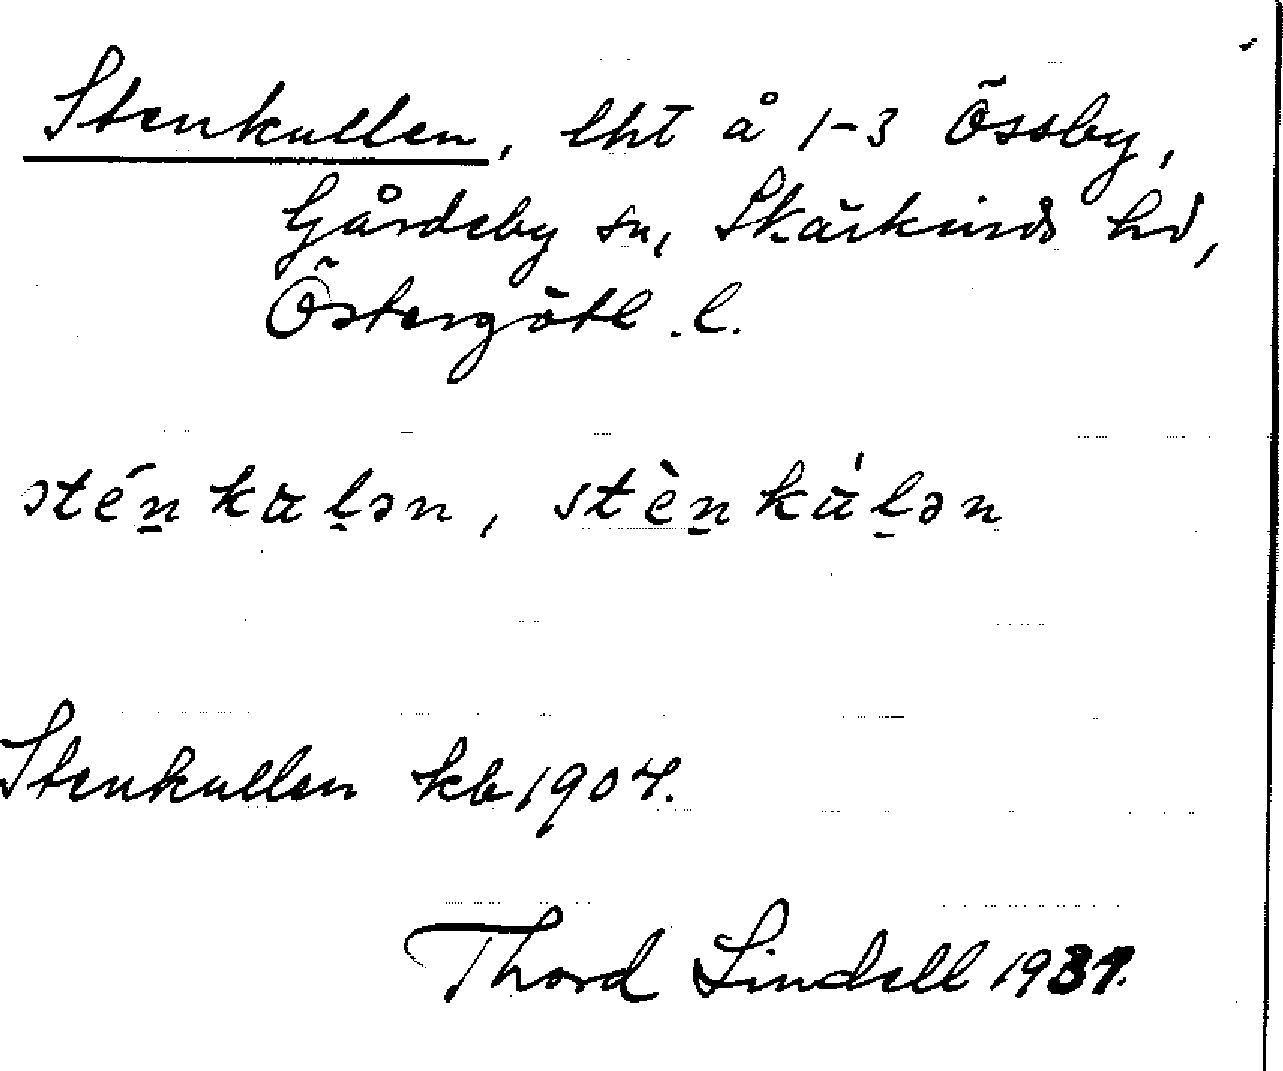 Stenkullen, lht å 1-3 Össby,
Gårdeby sn, Skärkinds hd,
Östergötl. l.
sténkaḻən, stènkàḻən
Stenkullen kb 1904.
Thord Lindell 1937.